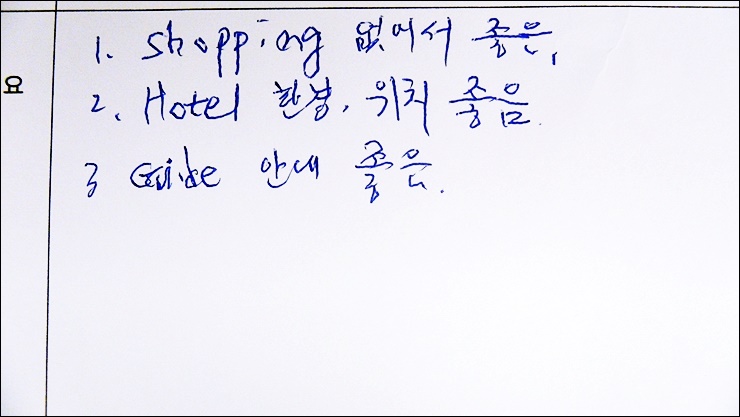 1. shopping 없어서 좋은,
요
2. Hotel 환경, 위치 좋음.
3 Guide 안내 좋은.